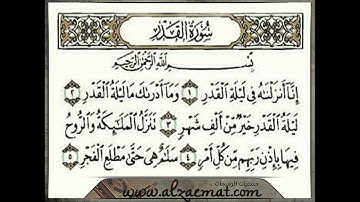 سُورَةُ الْقَدْرِ
بِسْمِ اللَّهِ الرَّحْمَٰنِ الرَّحِيمِ
إِنَّا أَنزَلْنَٰهُ فِي لَيْلَةِ الْقَدْرِ ١ وَمَا أَدْرَىٰكَ مَا لَيْلَةُ الْقَدْرِ ٢
لَيْلَةُ الْقَدْرِ خَيْرٌ مِّنْ أَلْفِ شَهْرٍ ٣ تَنَزَّلُ الْمَلَٰٓئِكَةُ وَالرُّوحُ
فِيهَا بِإِذْنِ رَبِّهِم مِّن كُلِّ أَمْرٍ ٤ سَلَٰمٌ هِيَ حَتَّىٰ مَطْلَعِ الْفَجْرِ ٥
www.alzaemat.com